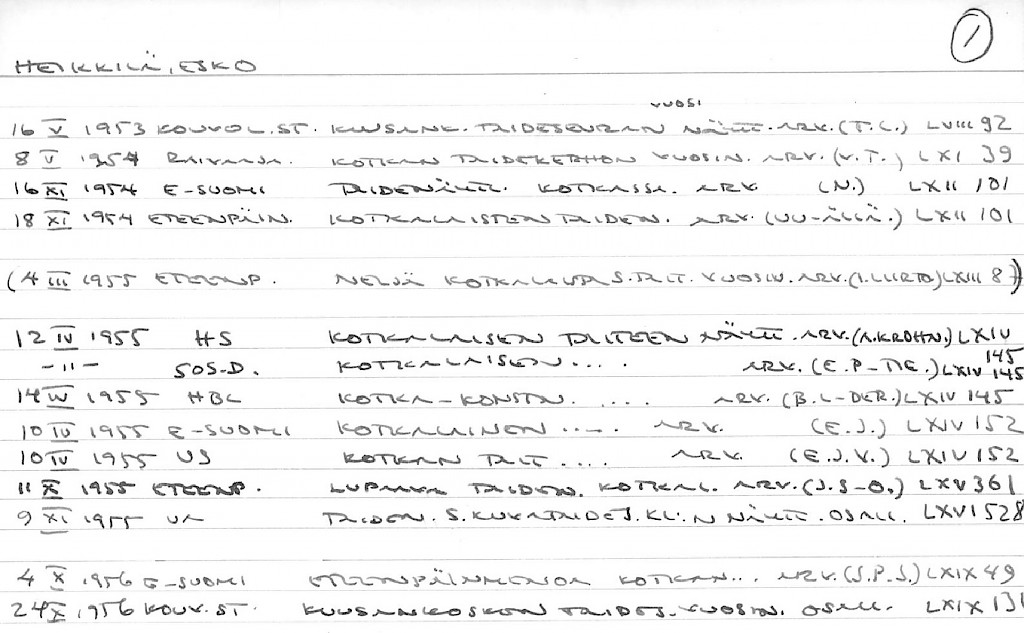 1
HEIKKILÄ, ESKO
VUOSI
16 V 1953 KOUVOL. ST. KUUSANK. TAIDESEURAN NÄYTT. ARV. (T.L.) LVIII 92
8 V 1954 RAIVAAJA. KOTKAN TAIDEKERHON VUOSIN. ARV. (V.T.) LXI 39
16 XI 1954 E-SUOMI TAIDENÄYTT. KOTKASSA. ARV. (N.) LXII 101
18 XI 1954 ETEENPÄIN. KOTKALAISTEN TAIDEN. ARV. (UU-ÄLLÄ.) LXII 101
(4 III 1955 ETEENP. NELJÄ KOTKALAISTA S. TAIT. VUOSIN. ARV. (I. LIIRTO) LXIII 87)
12 IV 1955 HS KOTKALAISEN TAITEEN NÄYTT. ARV. (A. KROHN.) LXIV 145
-"- SOS-D. KOTKALAISEN .... ARV. (E.P-TIE.) LXIV 145
14 IV 1955 HBL KOTKA-KONSTN. .... ARV. (B.L-DER.) LXIV 145
10 IV 1955 E-SUOMI KOTKALAINEN ..... ARV. (E.J.) LXIV 152
10 IV 1955 US KOTKAN TAIT .... ARV. (E.J.V.) LXIV 152
11 X 1955 ETEENP. LUPAAVA TAIDEN. KOTKAL. ARV. (J.S-O.) LXV 361
9 XI 1955 UA TAIDEN. S. KUVATAIDEJ. KL:N NÄYTT. OSALL. LXVI 528
4 X 1956 E-SUOMI ETEENPÄINMENOA KOTKAN... ARV. (S.P.S.) LXIX 49
24 X 1956 KOUV. ST. KUUSANKOSKEN TAIDES. VUOSIN. OSALL. LXIX 131